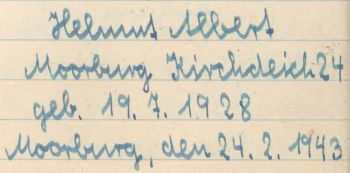 Helmut Albert
Moorburg Kirchdeich 24
geb. 19. 7. 1928
Moorburg, den 24. 2. 1943